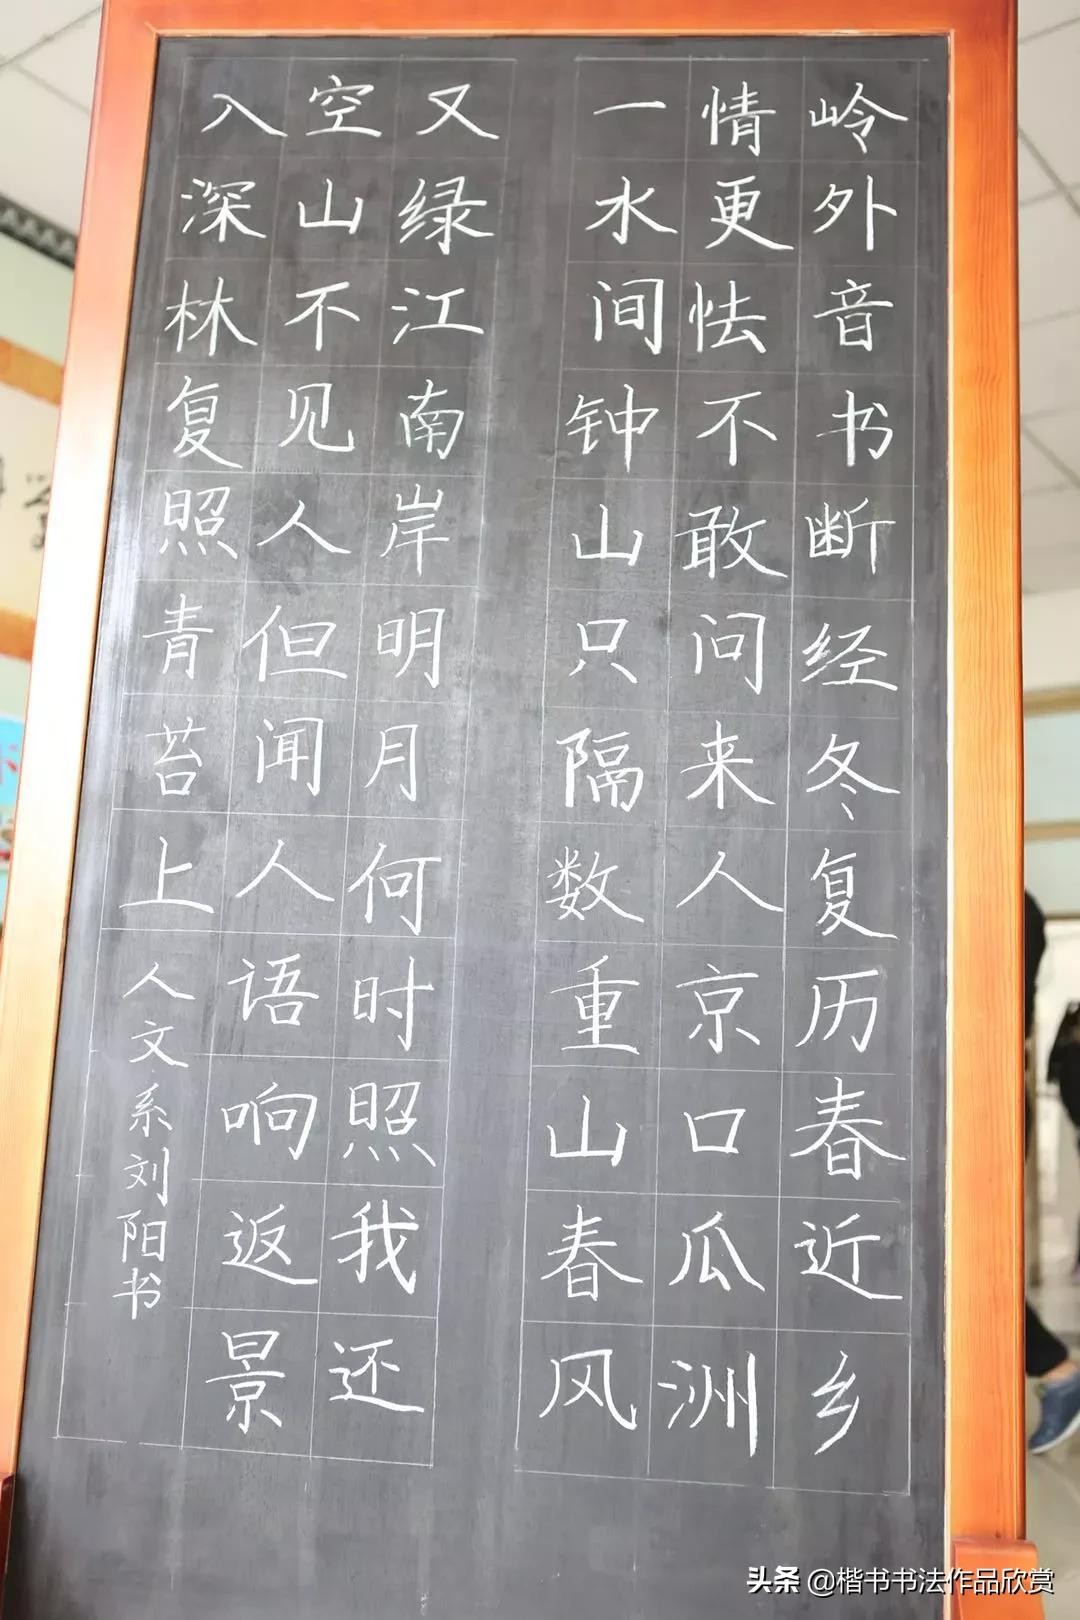 岭外音书断经冬复历春近乡
情更怯不敢问来人京口瓜洲
一水间钟山只隔数重山春风
又绿江南岸明月何时照我还
空山不见人但闻人语响返景
入深林复照青苔上
人文系刘阳书
头条 @楷书书法作品欣赏